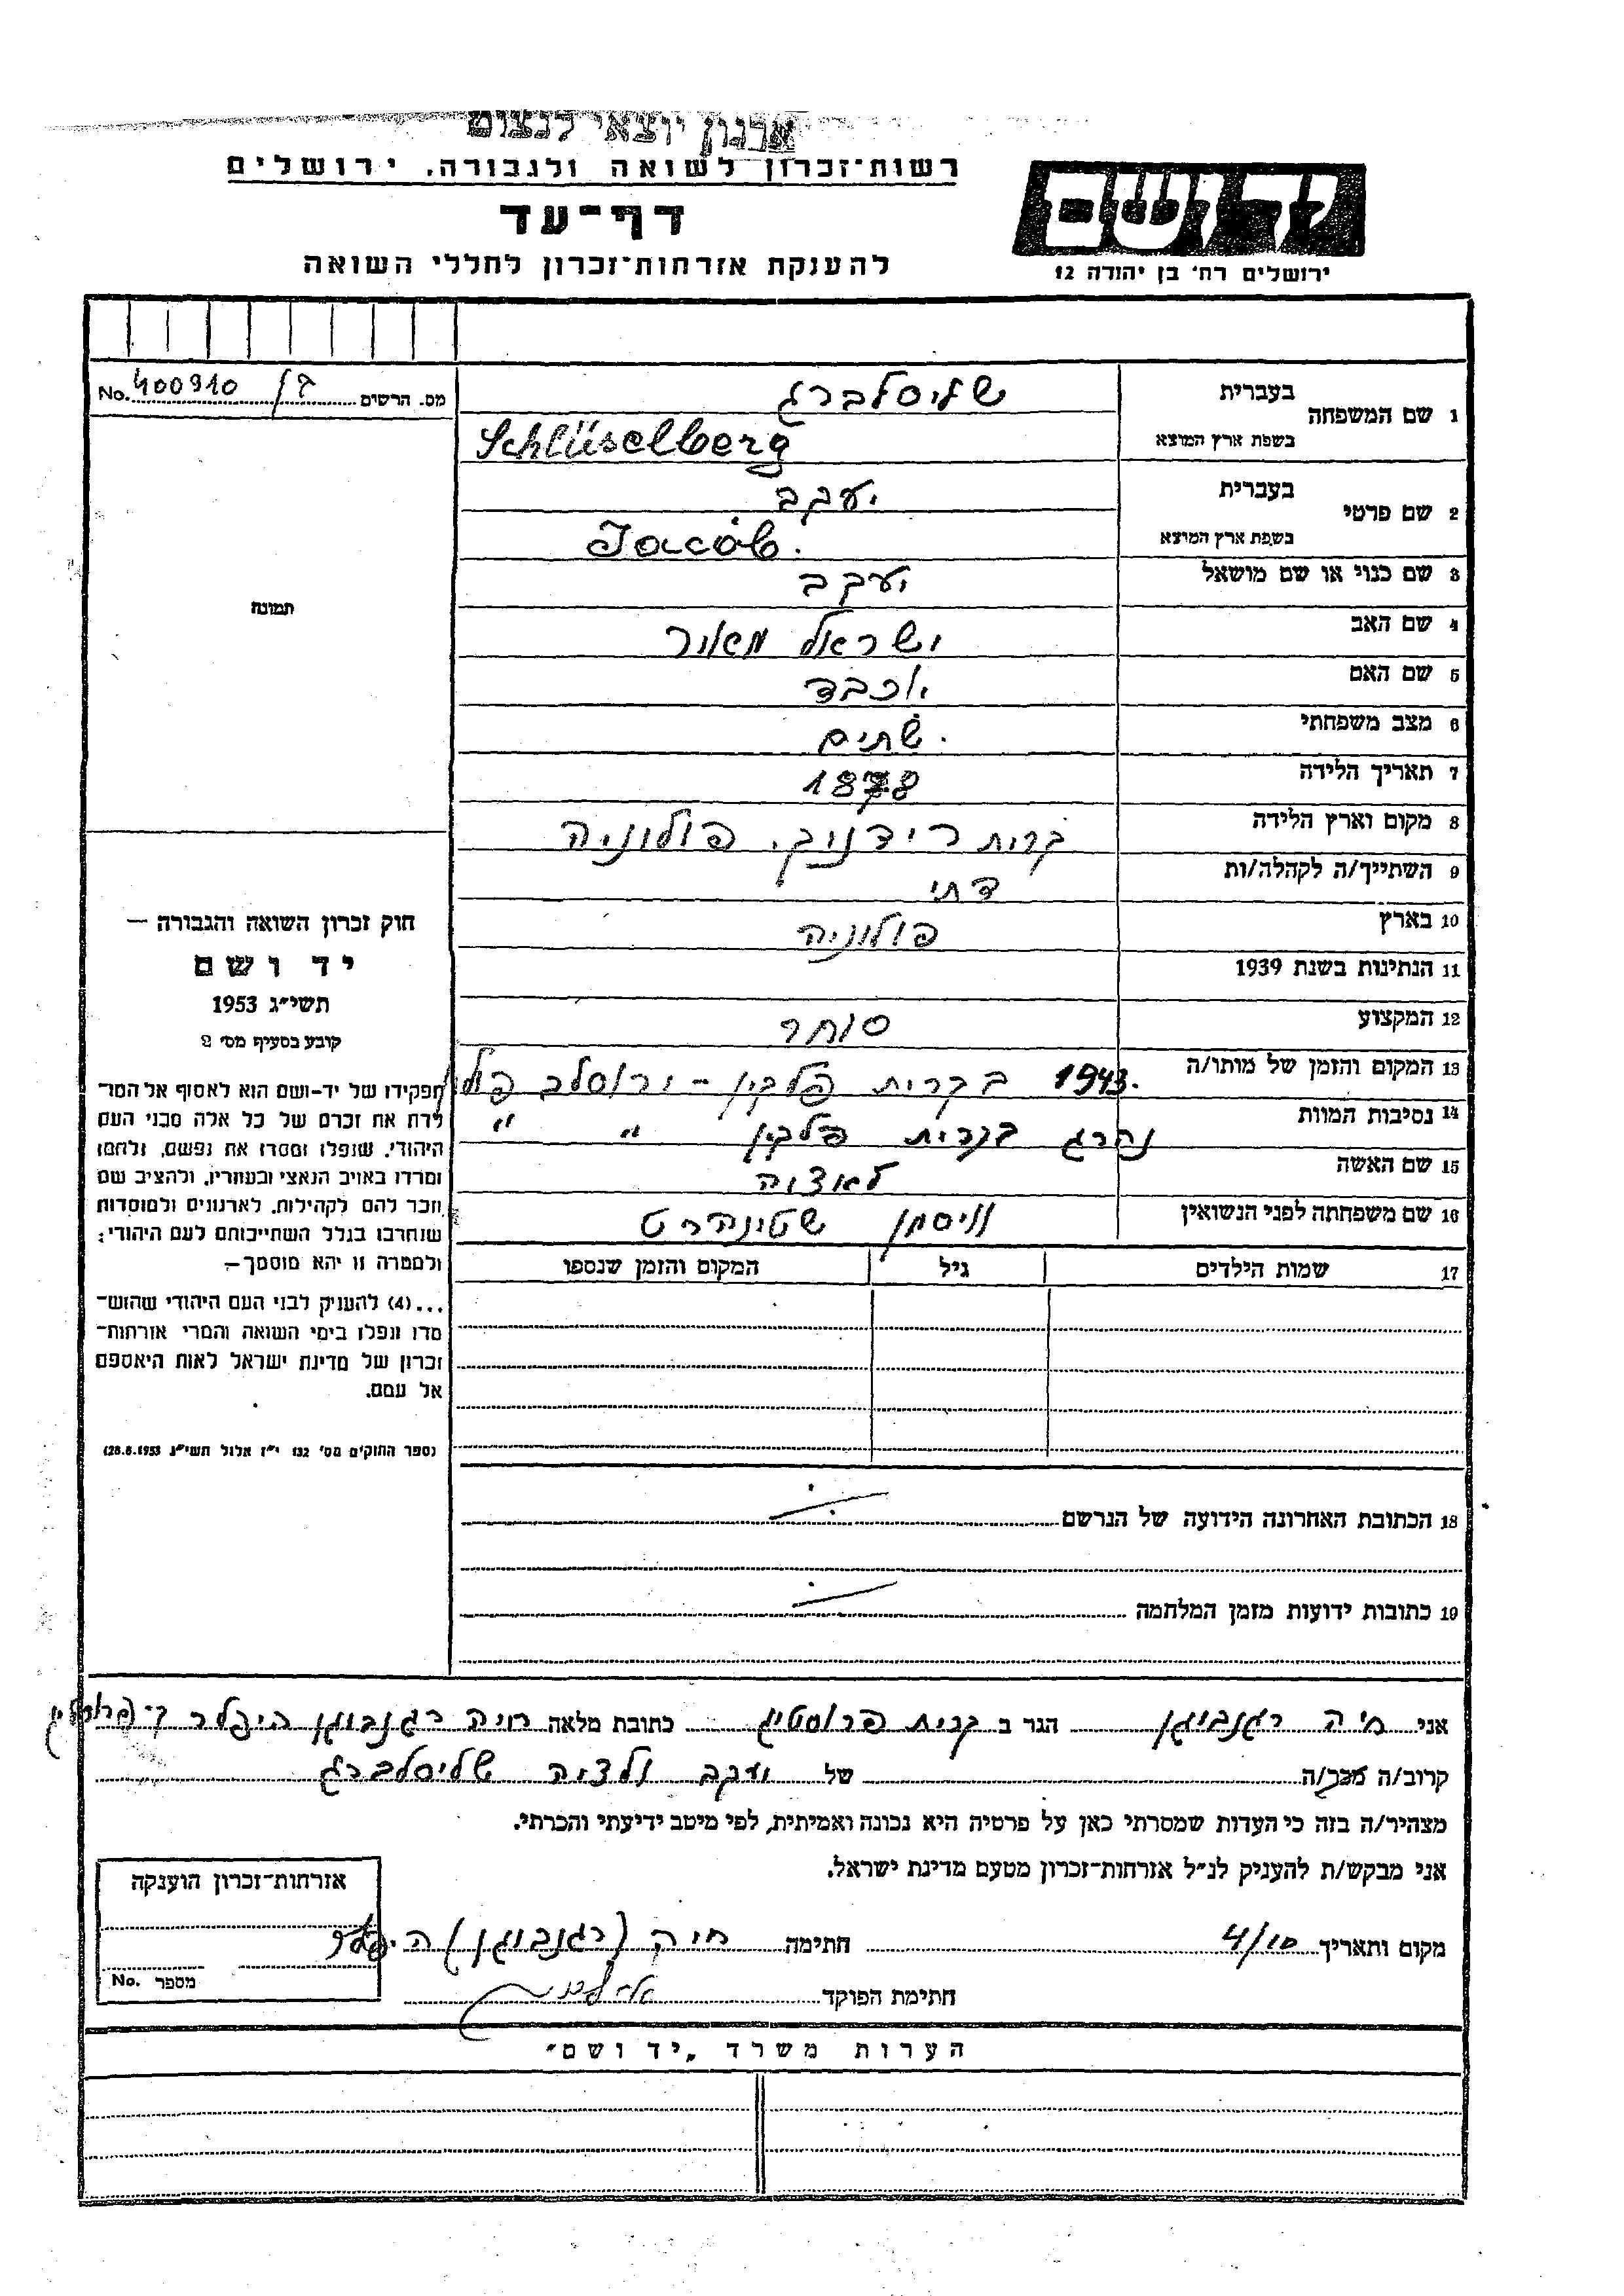 ארגון יוצאי לנצוט
רשות־זכרון לשואה ולגבורה, ירושלים
דף־עד
להענקת אזרחות־זכרון לחללי השואה
יד ושם
ירושלים רח׳ בן יהודה 12
מס. הרשים No. 400910
1 שם המשפחה
בעברית שליסלברג
בשפת ארץ המוצא Schlüselberg
2 שם פרטי
בעברית יעקב
בשפת ארץ המוצא Jacob
3 שם כנוי או שם מושאל יעקב
4 שם האב ישראל מאיר
5 שם האם יוכבד
6 מצב משפחתי שתים
7 תאריך הלידה
8 מקום וארץ הלידה קרית פולוניה
9 השתייך/ה לקהלה/ות דתי
10 בארץ פולוניה
11 הנתינות בשנת 1939
12 המקצוע סוחר
13 המקום והזמן של מותו/ה 1943. בקרית פלקין -
14 נסיבות המוות נהרג בקרית פלקין " "
15 שם האשה
16 שם משפחתה לפני הנשואין
17 שמות הילדים גיל המקום והזמן שנספו
תמונה
חוק זכרון השואה והגבורה —
יד ושם
תשי״ג 1953
קובע בסעיף מס׳ 2
תפקידו של יד-ושם הוא לאסוף אל המו־
לדת את זכרם של כל אלה מבני העם
היהודי, שנפלו ומסרו את נפשם, נלחמו
ומרדו באויב הנאצי ובעוזריו, ולהציב שם
וזכר להם לקהילות, לארגונים ולמוסדות
שנחרבו בגלל השתייכותם לעם היהודי;
ולמטרה זו יהא מוסמך—
...(4) להעניק לבני העם היהודי שהוש־
מדו ונפלו בימי השואה והמרי אזרחות־
זכרון של מדינת ישראל לאות היאספם
אל עמם.
(ספר החוקים מס׳ 132 י״ז אלול תשי״ג 28.8.1953)
18 הכתובת האחרונה הידועה של הנרשם
19 כתובות ידועות מזמן המלחמה
אני חיה רגנבוגן הגר ב קרית כתובת מלאה חיה רגנבוגן
קרוב/ה מכר/ה של יעקב שליסלברג
מצהיר/ה בזה כי העדות שמסרתי כאן על פרטיה היא נכונה ואמיתית, לפי מיטב ידיעתי והכרתי.
אני מבקש/ת להעניק לנ״ל אזרחות־זכרון מטעם מדינת ישראל.
מקום ותאריך 4/10 חתימה חיה (רגנבוגן)
חתימת הפוקד
אזרחות־זכרון הוענקה
מספר No.
הערות משרד „יד ושם״